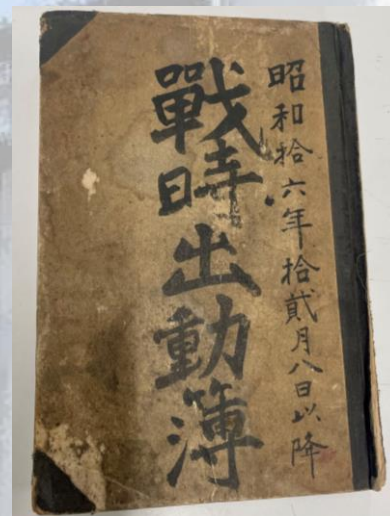 昭和拾六年拾貳月八日以降
戰時出動簿